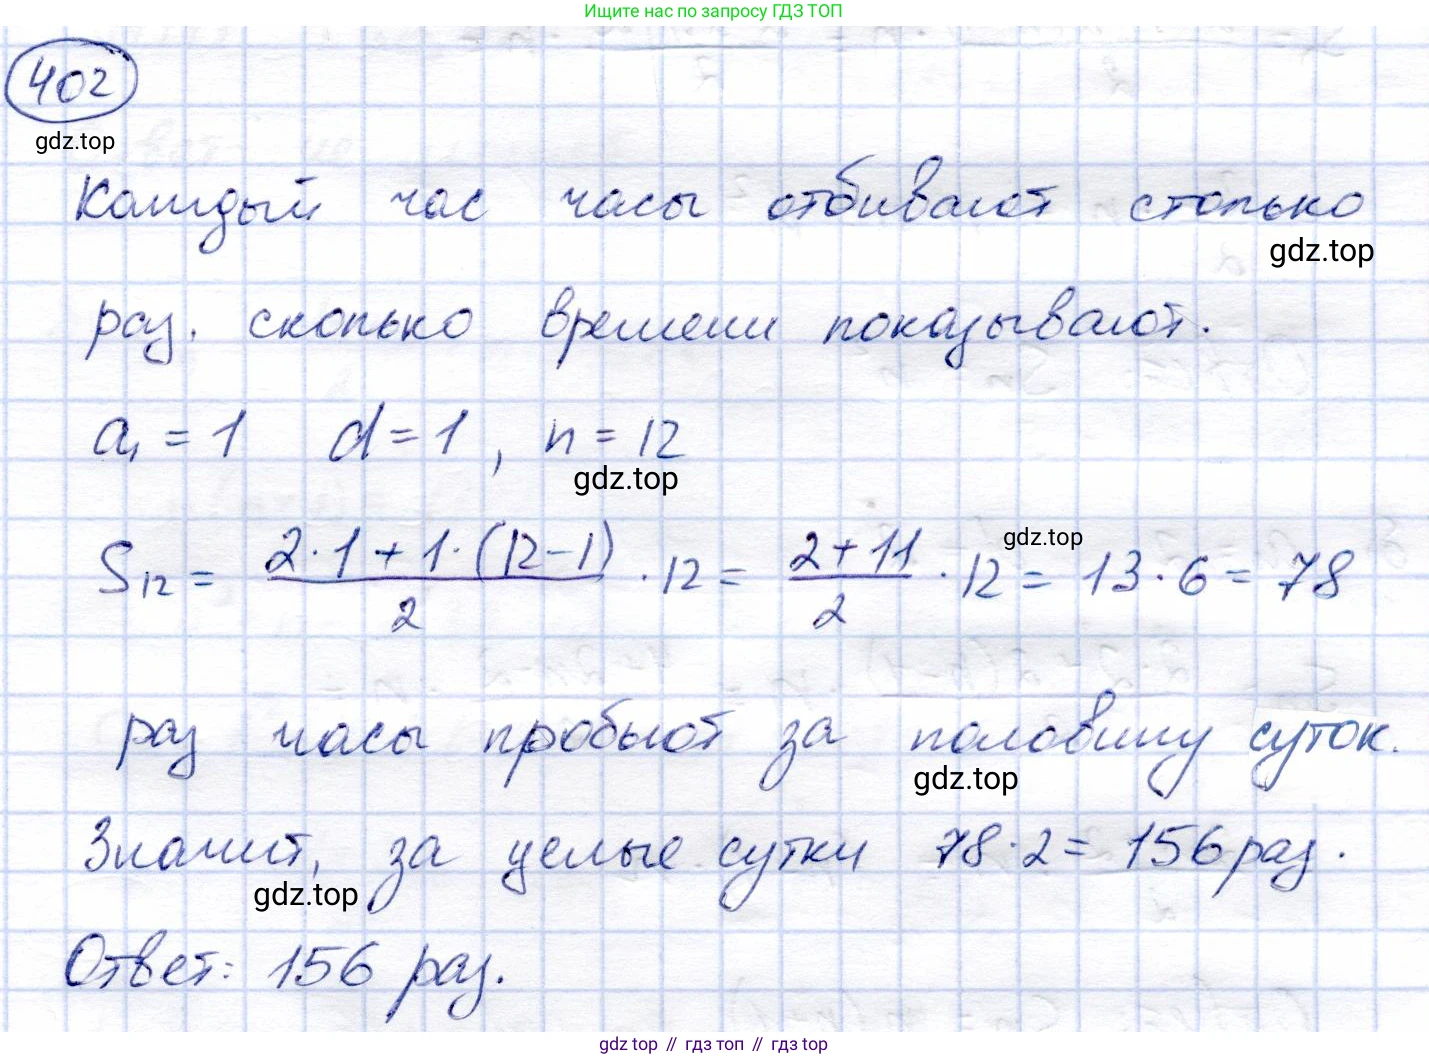 Ищите нас по запросу ГДЗ ТОП
402
gdz.top
Каждый час часы отбивают столько
gdz.top
раз, сколько времени показывают.
a₁ = 1 d = 1 , n = 12
gdz.top
S₁₂ = (2·1 + 1·(12 - 1))/2 · 12 = (2 + 11)/2 · 12 = 13 · 6 = 78
gdz.top
раз часы пробьют за половину суток.
gdz.top
Значит, за целые сутки 78 · 2 = 156 раз.
gdz.top
Ответ: 156 раз.
gdz top // гдз топ // гдз top